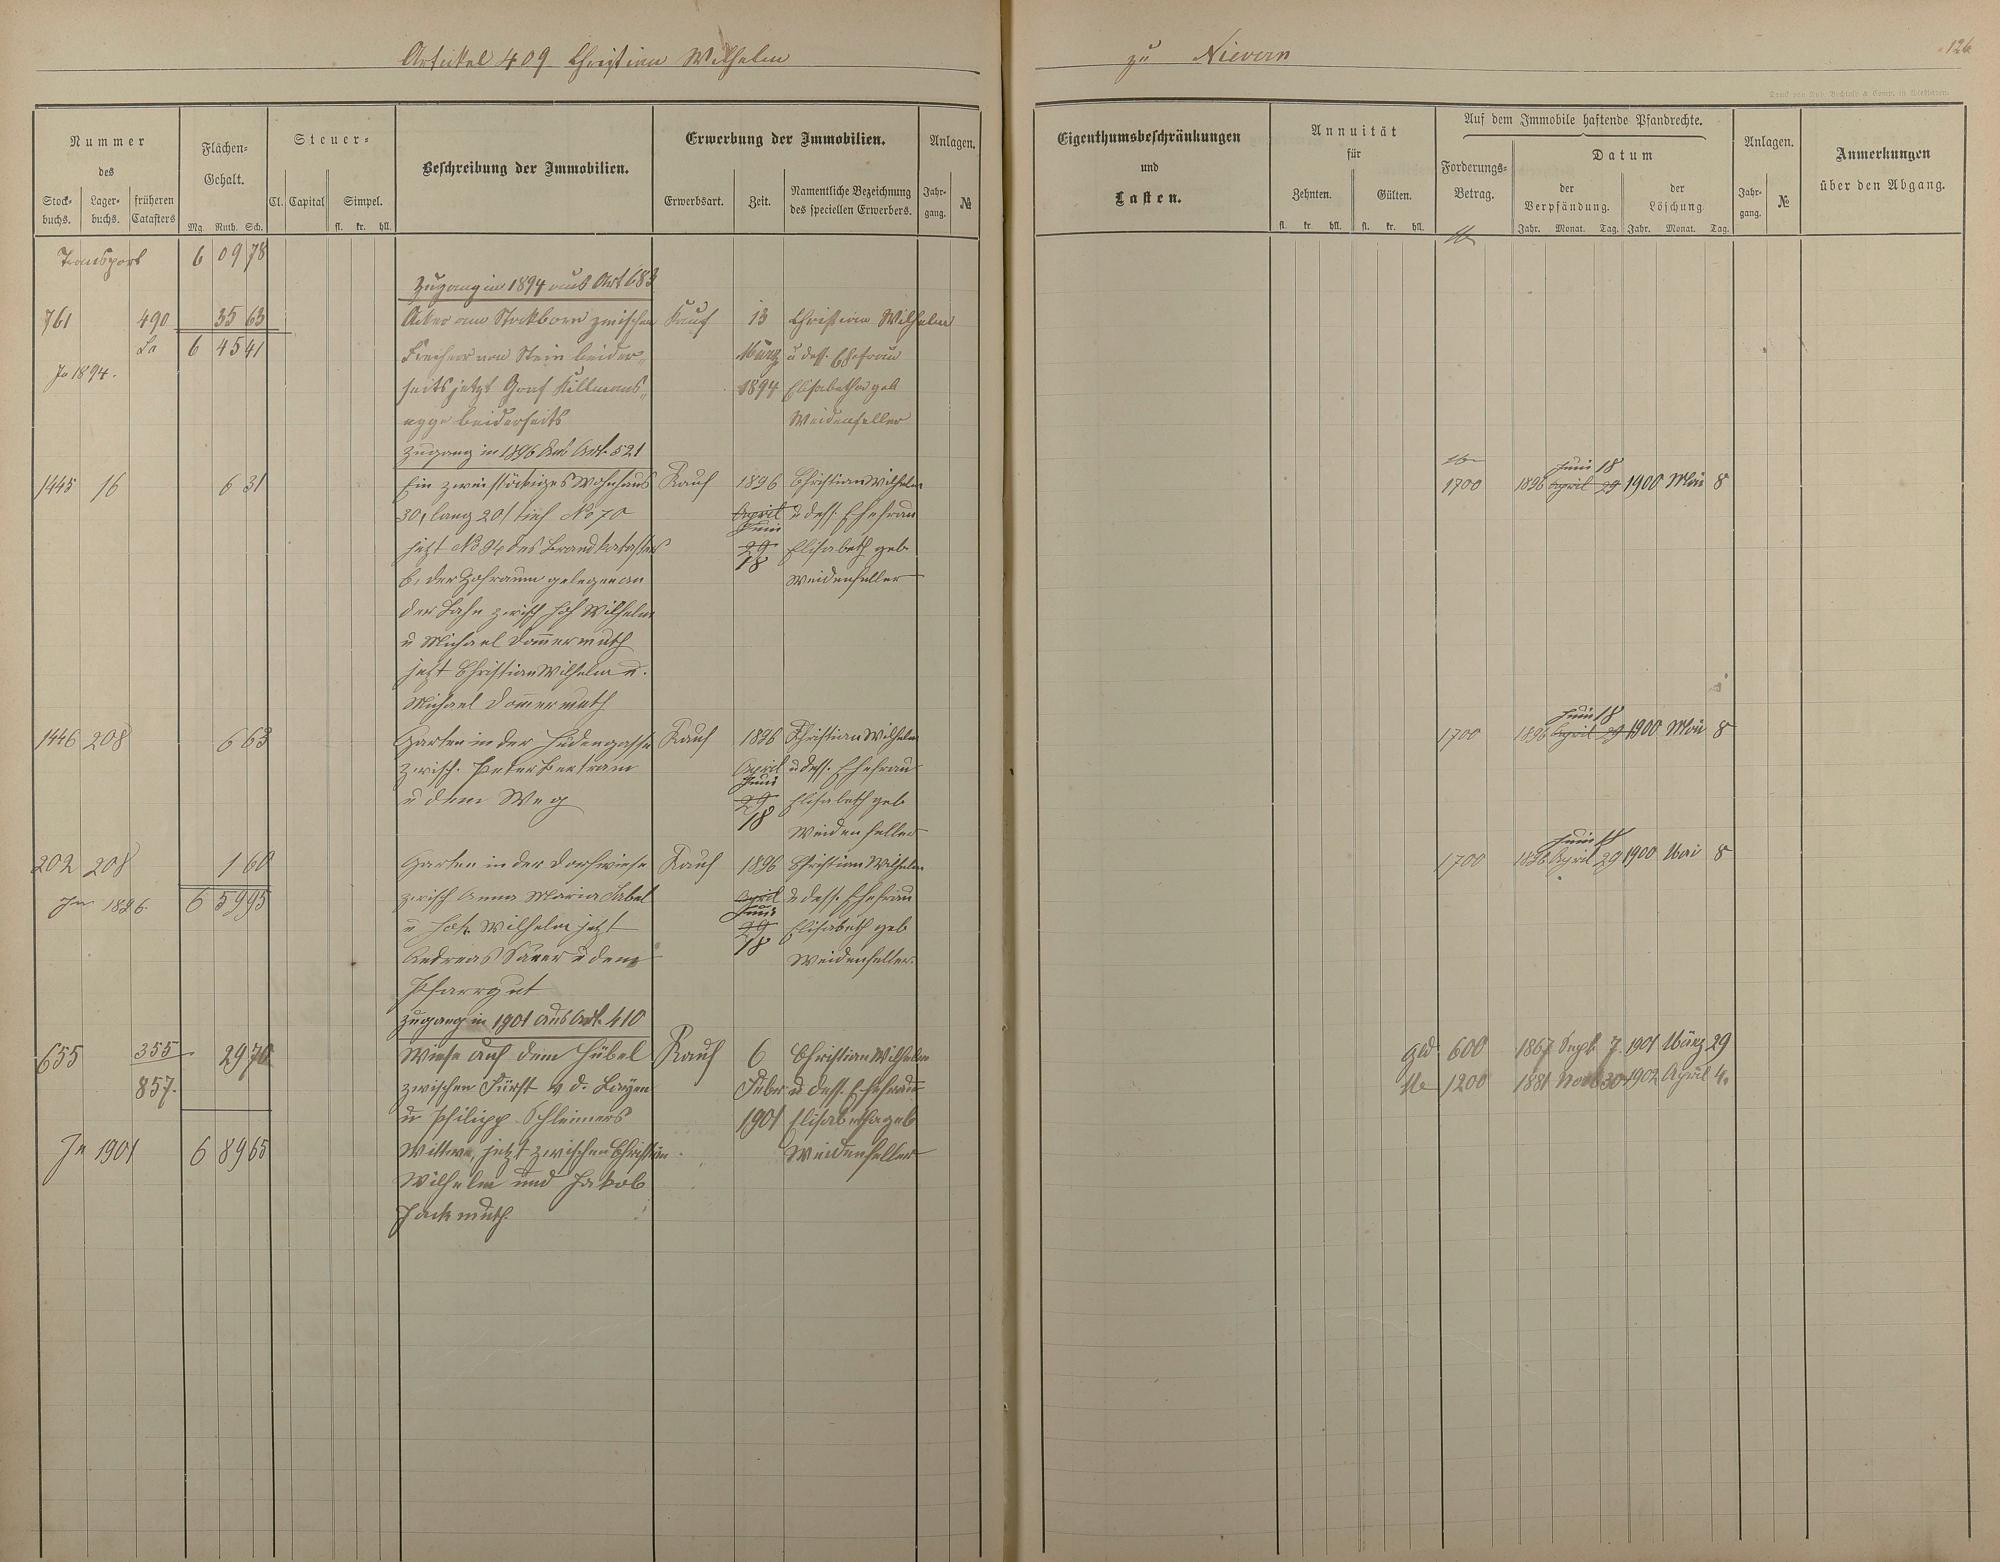 Artikel 409 Christian Wilhelm zu Nievern
126
Druck von Rud. Bechtold & Comp. in Wiesbaden.
Nummer des
Stock-buchs. Lager-buchs. früheren Catasters
Flächen-Gehalt.
Mg. Ruth. Sch.
Steuer-
Cl. Capital Simpel.
fl. kr. hll.
Beschreibung der Immobilien.
Erwerbung der Immobilien.
Erwerbsart. Zeit. Namentliche Bezeichnung des speciellen Erwerbers.
Anlagen.
Jahr-gang. №
Eigenthumsbeschränkungen
und
Lasten.
Annuität
für
Zehnten. Gülten.
fl. kr. hll. fl. kr. hll.
Auf dem Immobile haftende Pfandrechte.
Forderungs-Betrag.
Datum
der Verpfändung. der Löschung
Jahr. Monat. Tag. Jahr. Monat. Tag.
Anlagen.
Jahr-gang. №
Anmerkungen
über den Abgang.
Transport 6 09 78
Zugang in 1894 aus Art 683
761 490 35 63 Acker am Stockborn zwischen Kauf 13 Christian Wilhelm
6 45 41 Freiherr von Stein beider- März u dess. Ehefrau
In 1894. seits jetzt Graf Killmans- 1894 Elisabetha geb
egge beiderseits Weidenfeller
Zugang in 1896 aus Art. 521
1445 16 6 31 Ein zweistöckiges Wohnhaus Kauf 1896 Christian Wilhelm 1700 1896 Juni 18 April 29 1900 Mai 8
30, lang 20, tief No 70 April Juni u dess. Ehefrau
jetzt No 94 des Brandkatasters 29 18 Elisabeth geb
b, der Hofraum gelegen an Weidenfeller
der Lahn zwisch Joh Wilhelm
u Michael Dom̅ermuth
jetzt Christian Wilhelm u.
Michael Dom̅ermuth
1446 208 6 63 Garten in der Südengasse Kauf 1896 Christian Wilhelm 1700 1896 Juni 18 April 29 1900 Mai 8
zwisch. Peter Bertram April Juni u dess. Ehefrau
u dem Weg 29 18 Elisabeth geb
Weidenfeller
202 208 1 60 Garten in der Dorfwiese Kauf 1896 Christian Wilhelm 1700 1896 Juni 18 April 29 1900 Mai 8
6 59 95 zwisch Anna Maria April Juni u dess. Ehefrau
In 1896. u Joh. Wilhelm jetzt 29 18 Elisabeth geb
Andreas Sauer u dem Weidenfeller.
Pfarrgut
Zugang in 1901 aus Art. 410
655 355 29 70 Wiese auf dem Hübel Kauf 6 Christian Wilhelm 600 1867 Sept. 7. 1901 März 29
857. zwischen Fürst v. d. Leyen Febr u dess. Ehefrau 1200 1881 Novb 30 1902 April 4.
u Philipp Schleimers 1901 Elisabetha geb
In 1901 6 89 65 Wittwe, jetzt zwischen Christian Weidenfeller
Wilhelm und Jakob